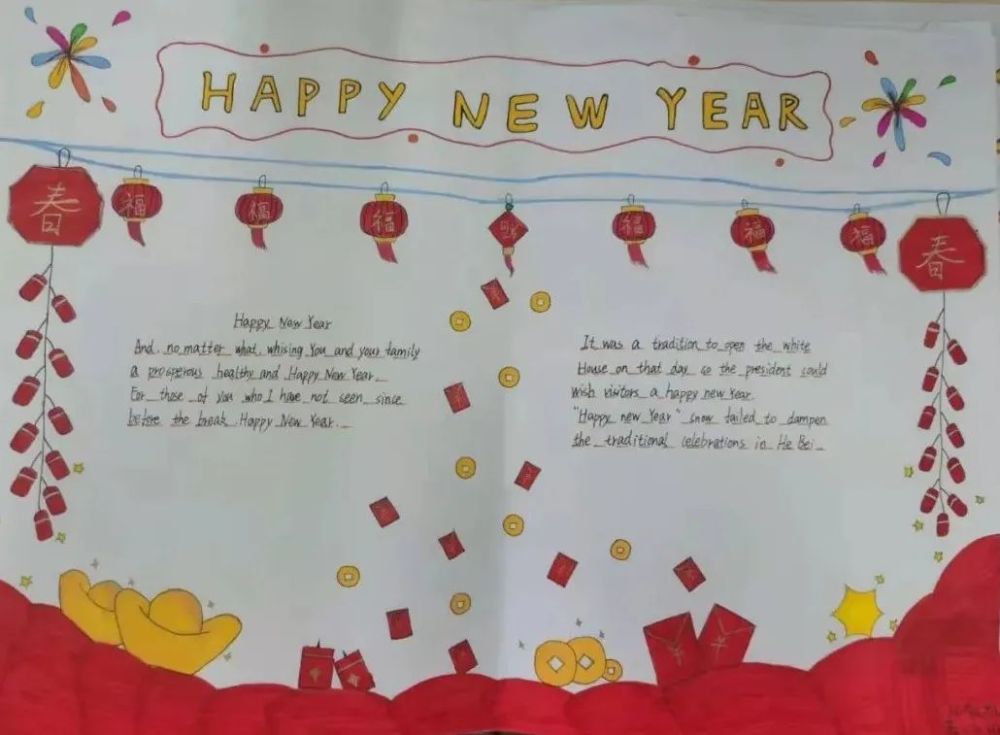 HAPPY NEW YEAR
春
福
福
福
福
福
福
春
Happy New Year
And, no matter what, whising You and your family
a prosperous healthy and Happy New Year.
For those of you who I have not seen since
before the break, Happy New Year.
It was a tradition to open the white
House on that day so the president could
wish visitors a happy new Year.
"Happy new Year" snow failed to dampen
the traditional celebrations in He Bei